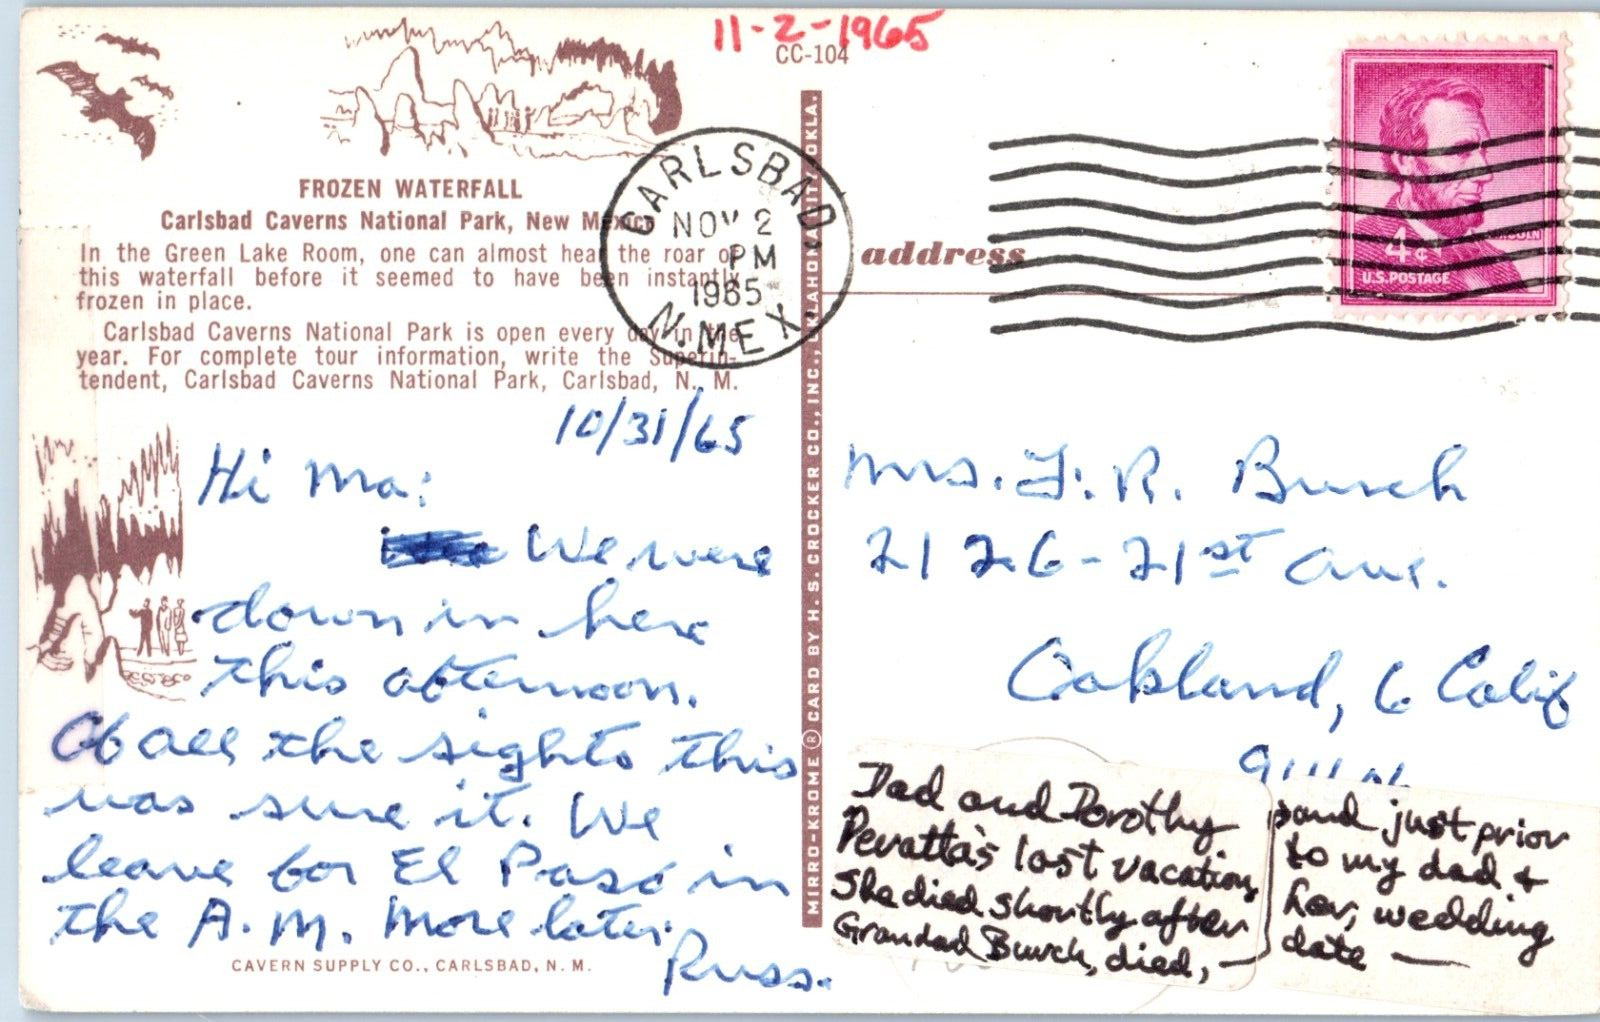 11-2-1965
CC-104
FROZEN WATERFALL
Carlsbad Caverns National Park, New Mexico
In the Green Lake Room, one can almost hear the roar of
this waterfall before it seemed to have been instantly
frozen in place.
Carlsbad Caverns National Park is open every day in the
year. For complete tour information, write the Superin-
tendent, Carlsbad Caverns National Park, Carlsbad, N. M.
CARLSBAD
NOV 2
PM
1965
N. MEX.
address
LINCOLN
4¢
U.S. POSTAGE
MIRRO-KROME ® CARD BY H. S. CROCKER CO., INC., OKLAHOMA CITY, OKLA.
10/31/65
Hi Ma:
We were
down in here
this afternoon.
Of all the sights this
was sure it. We
leave for El Paso in
the A.M. More later.
Russ.
CAVERN SUPPLY CO., CARLSBAD, N. M.
Mrs. F. R. Burch
2126-21st Ave.
Oakland, 6 Calif
Dad and Dorothy
Pevatta's last vacation,
She died shortly after
Grandad Burch, died, —
and just prior
to my dad &
her, wedding
date —